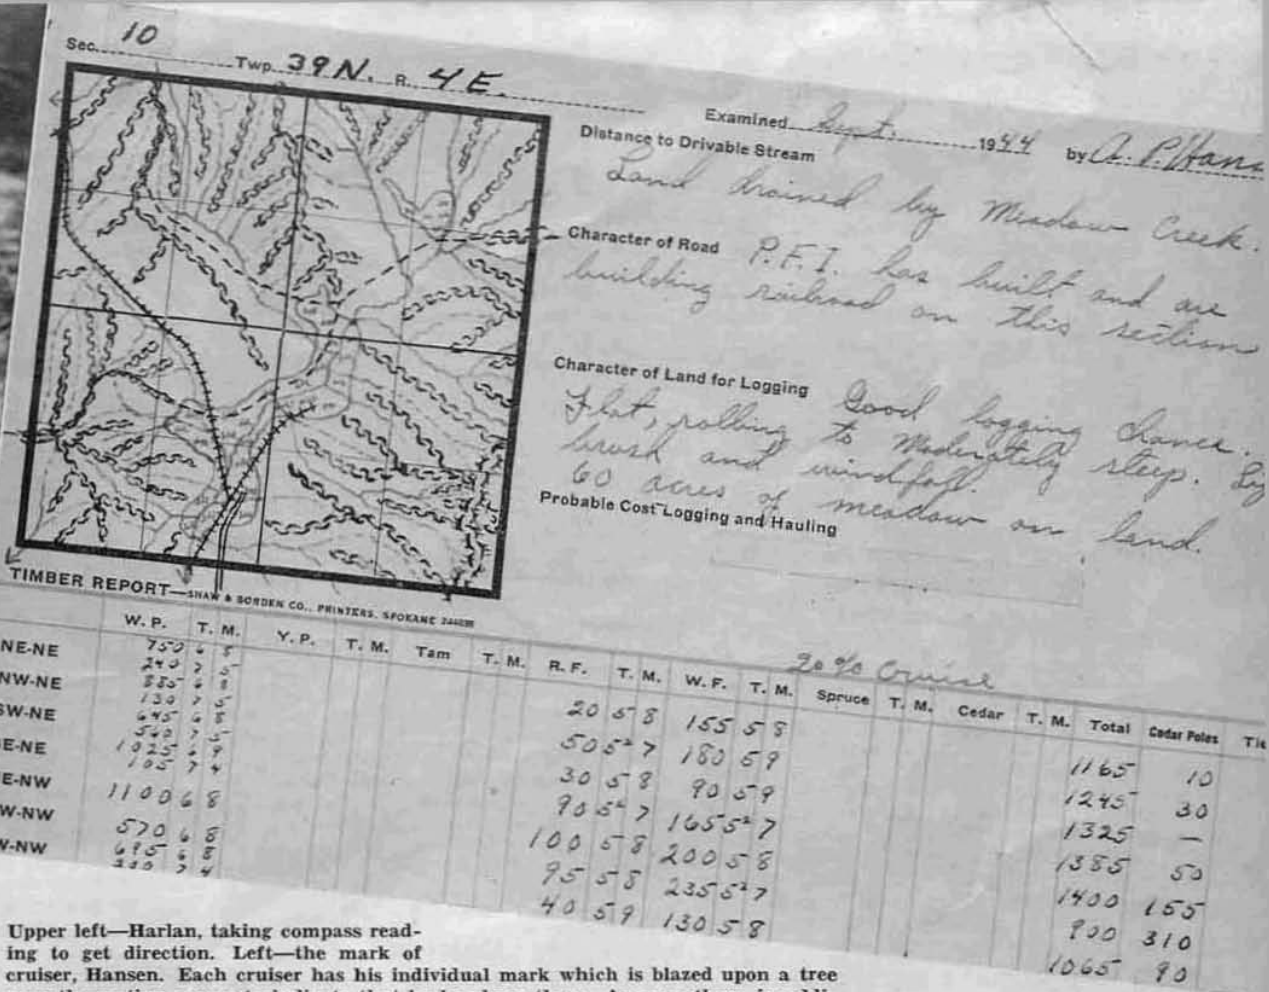 Sec. 10 Twp. 39N. R. 4E.
Examined Sept. 1944 by A. P. Hans
Distance to Drivable Stream
Land drained by Meadow Creek.
Character of Road P.F.I. has built and are
building railroad on this section
Character of Land for Logging Good logging chance.
Flat, rolling to Moderately steep.
brush and windfall.
60 acres of meadow on land.
Probable Cost Logging and Hauling
TIMBER REPORT—SHAW & BORDEN CO., PRINTERS, SPOKANE
20% Cruise
W. P. T. M. Y. P. T. M. Tam T. M. R. F. T. M. W. F. T. M. Spruce T. M. Cedar T. M. Total Cedar Poles Tie
NE-NE 750 6 8 20 5 8 155 5 8 1165 10
240 7 5
NW-NE 885 6 8 50 5² 7 180 5 9 1245 30
130 7 5
SW-NE 645 6 8 30 5 8 90 5 9 1325 —
560 7 5
E-NE 1025 6 9 90 5² 7 165 5² 7 1385 50
105 7 4
E-NW 1100 6 8 100 5 8 200 5 8 1400 155
W-NW 570 6 8 95 5 8 235 5² 7 900 310
W-NW 695 6 8 40 5 9 130 5 8 1065 90
200 7 4
Upper left—Harlan, taking compass read-
ing to get direction. Left—the mark of
cruiser, Hansen. Each cruiser has his individual mark which is blazed upon a tree